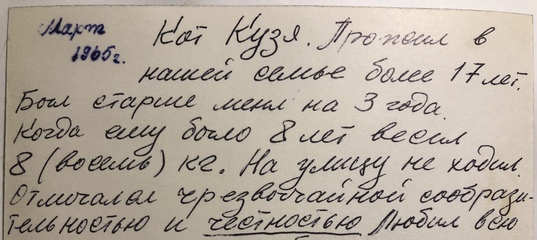 Март
1965г.
Кот Кузя. Прожил в
нашей семье более 17 лет.
Был старше меня на 3 года.
Когда ему было 8 лет весил
8 (восемь) кг. На улицу не ходил.
Отличался чрезвычайной сообрази-
тельностью и честностью Любил всю